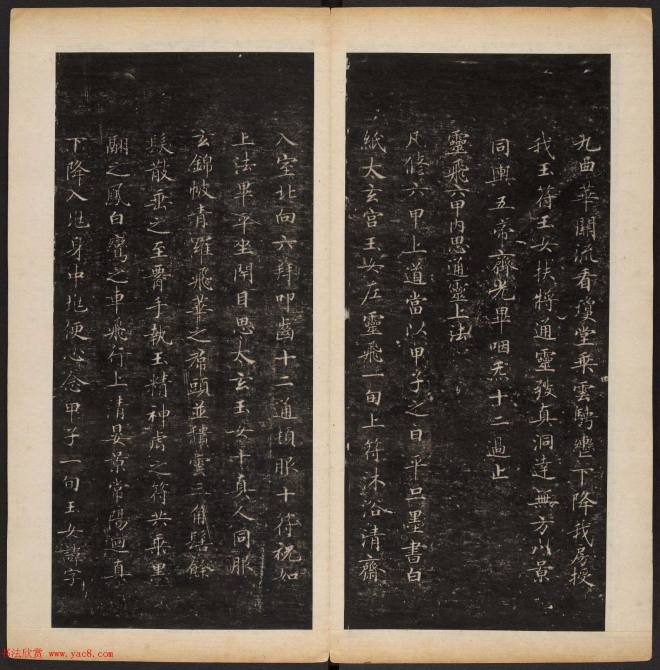 九曲華關流看瓊堂乘雲騁轡下降我房授
我玉符玉女扶將通靈致真洞達無方八景
同輿五帝齊光畢咽炁十二過止
靈飛六甲內思通靈上法
凡修六甲上道當以甲子之日平旦墨書白
紙太玄宮玉女左靈飛一旬上符沐浴清齋
入室北向六拜叩齒十二通頓服十符祝如
上法畢平坐閉目思太玄玉女十真人同服
玄錦帔青羅飛華之帬頭並頹雲三角髻餘
髮散垂之至要手執玉精神虎之符共乘黑
翮之鳳白鸞之車飛行上清晏景常陽迴真
下降入兆身中兆便心念甲子一旬玉女諱字
书法欣赏 www.yac8.com